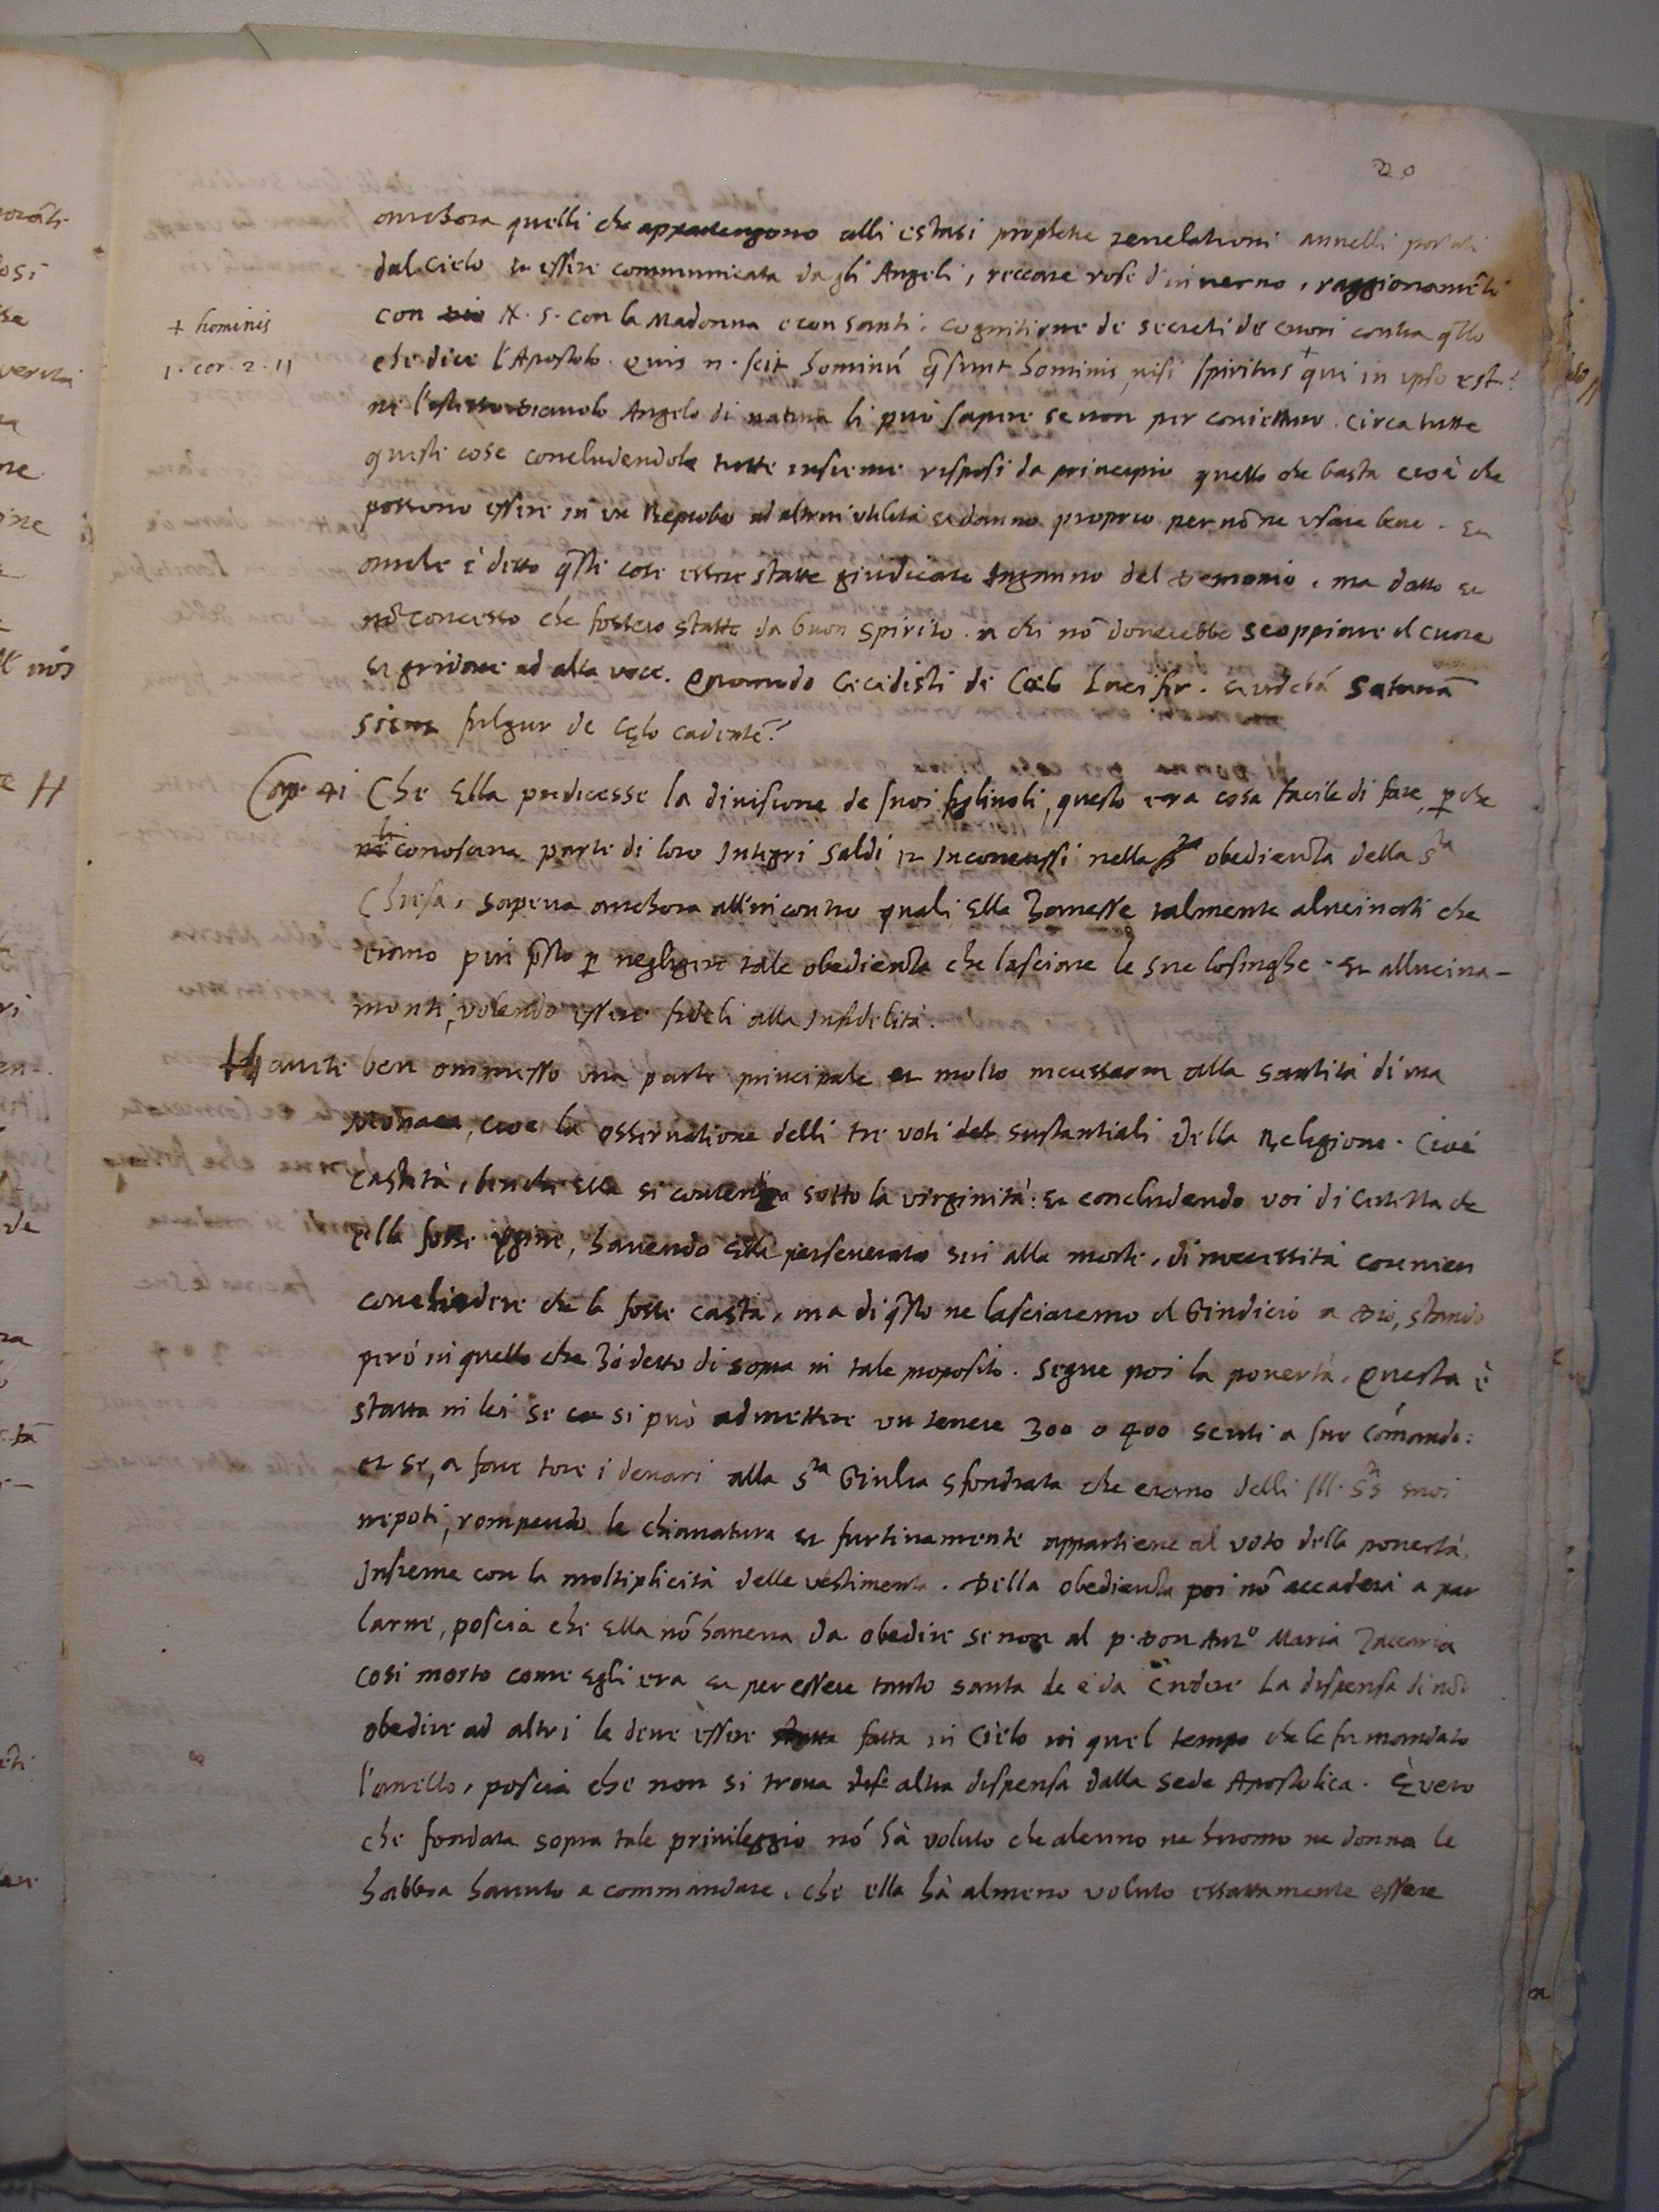 20
anchora quelli che appartengono alli estasi prophetie revelationi annelli portati
dal cielo et essere communicata da gli Angeli, reccare rose d'inverno, raggionamēti
con N. S. con la Madonna e con santi. cognitione de secreti de cuori contra q̃llo
+ hominis
1. cor. 2. 11
che dice l'Apostolo. Quis n. scit hominū q̃ sunt hominis nisi spiritus + qui in ipso est?
ne l'istesso diavolo Angelo di natura li può sapere se non per conietture. circa tutte
queste cose concludendole tutte insieme resposi da principio quello che basta cioè che
possono essere in un Reprobo ad altrui utilità et danno proprio per nō ne usare bene. et
anche è detto q̃ste cose essere state giudicate Inganno del Demonio, ma dato et
nō concesso che fossero statte da buon spirito. a chi nō doverebbe scoppiare il cuore
et gridare ad alta voce. Quomodo cecidisti de Cœlo Lucifer. et videbā Satanā
sicut fulgur de cęlo cadentē?
Cap. 41 Che Ella predicesse la divisione de suoi figlivoli, questo era cosa facile di fare, p̱che
li conosceva parte di loro Integri saldi et Inconcussi nella obedienza della s.ta
Chiesa, sapeva anchora all'incontro quali Ella havesse talmente alucinati che
erano più p̃sto p̱ negligere tale obedienza che lasciare le sue losinghe et allucina-
menti, volendo essere fideli alla Infidelità.
Havete ben ommesso una parte principale et molto necessaria alla santità di una
Monaca, cioe la osservatione delli tre voti sustantiali della Religione. Cioè
castità, benche Ella si contenga sotto la virginità: et concludendo voi di certezza che
ella fosse vgine, havendo Ella perseverato sin alla morte, di necessità convien
concludere che la fosse casta, ma di q̃sto ne lasciaremo il Giudicio a Dio, stando
però in quello che hò detto di sopra in tale proposito. Segue poi la povertà. Questa è
statta in lei se si può admettere un tenere 300 o 400 scuti a suo cōmando:
et se, a fare tore i denari alla S.ra Giulia Sfondrata che erano delli Ill. S.ri suoi
nepoti, rompendo la chiavatura et furtivamente appartiene al voto della povertà.
Insieme con la moltiplicità delle vestimenta. Della obedienza poi nō accaderà a par
larne, poscia che Ella nō haveva da obedire se non al p. Don Ant.o Maria Zaccaria
cosi morto come egli era et per essere tanto santa le è da credere La dispensa di nō
obedire ad altri le deve essere fatta in Cielo in quel tempo che le fu mandato
l'anello, poscia che non si trova altra dispensa dalla Sede Apostolica. È vero
che fondata sopra tale privileggio nō hà voluto che alcuno ne huomo ne donna le
habbia havuto a commandare, che ella hà almeno voluto essattamente essere